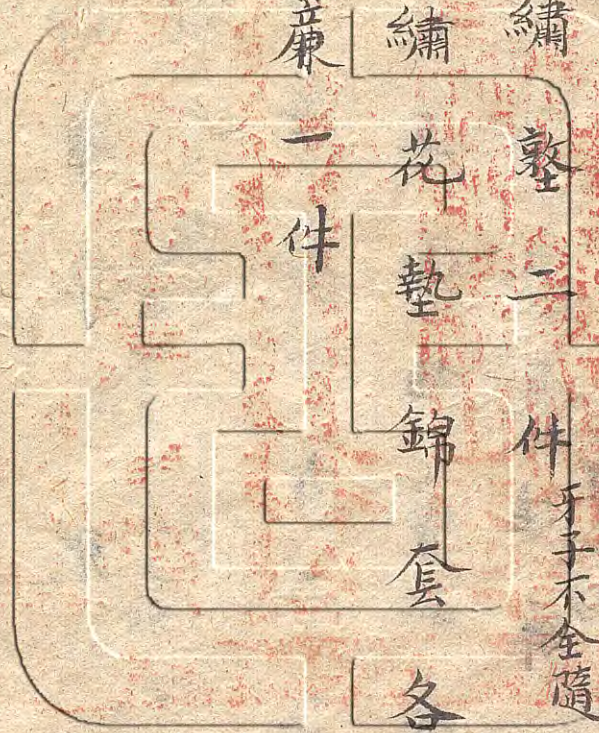 繡墪二件牙子不全隨
繡花墊錦套各
簾一件